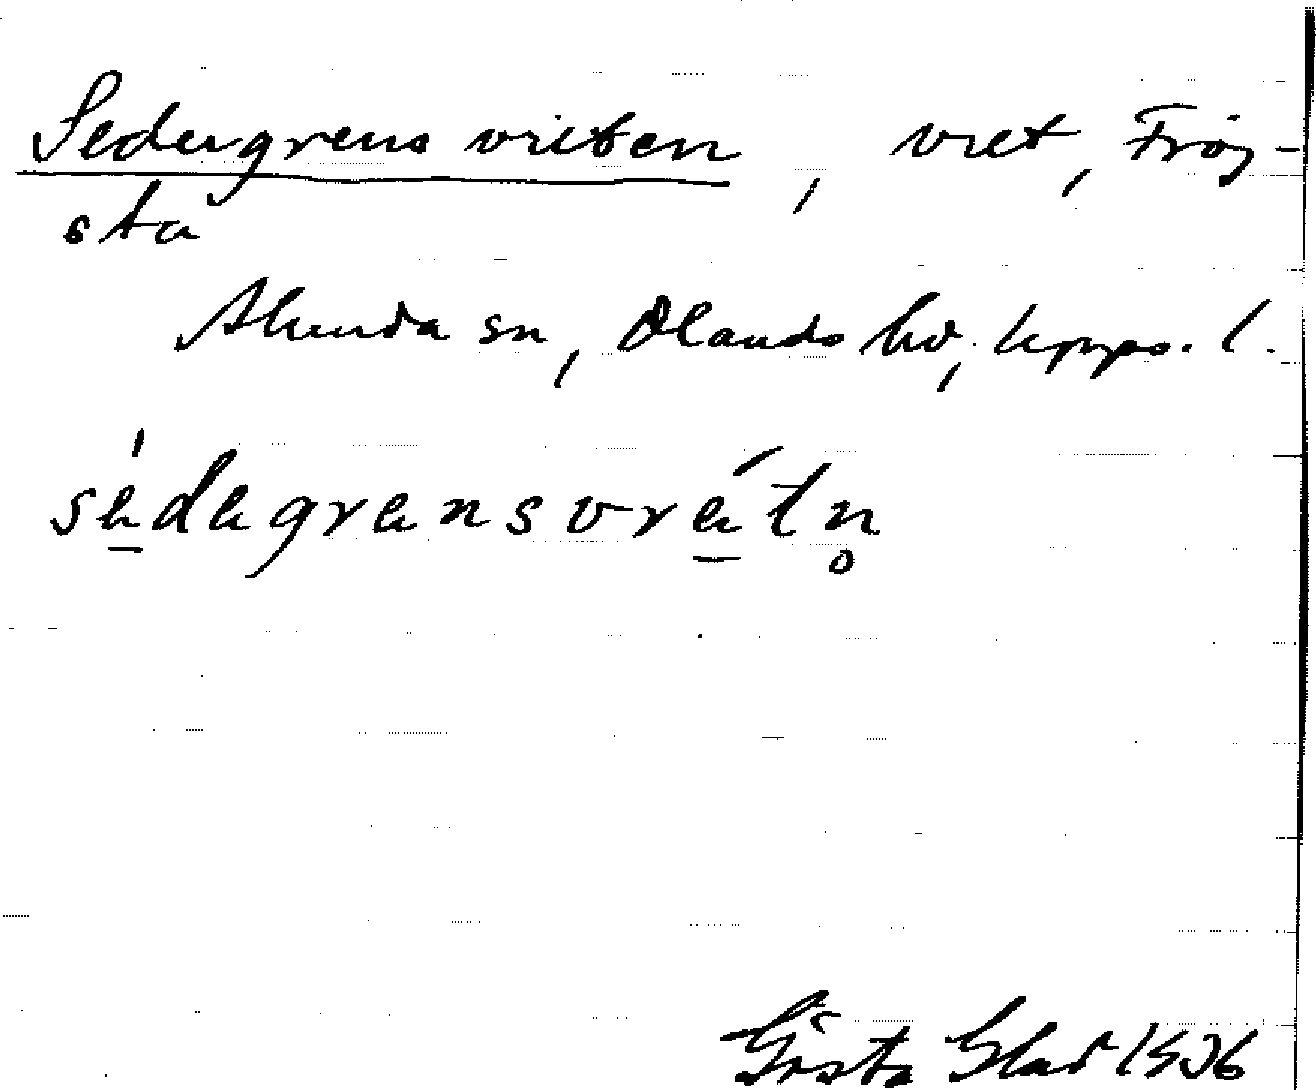 Sedergrens vreten, vret, Fröj-
sta
Alunda sn, Olands hd, Upps. l.
sédegrensvrétn̥
Gösta Glad 1936